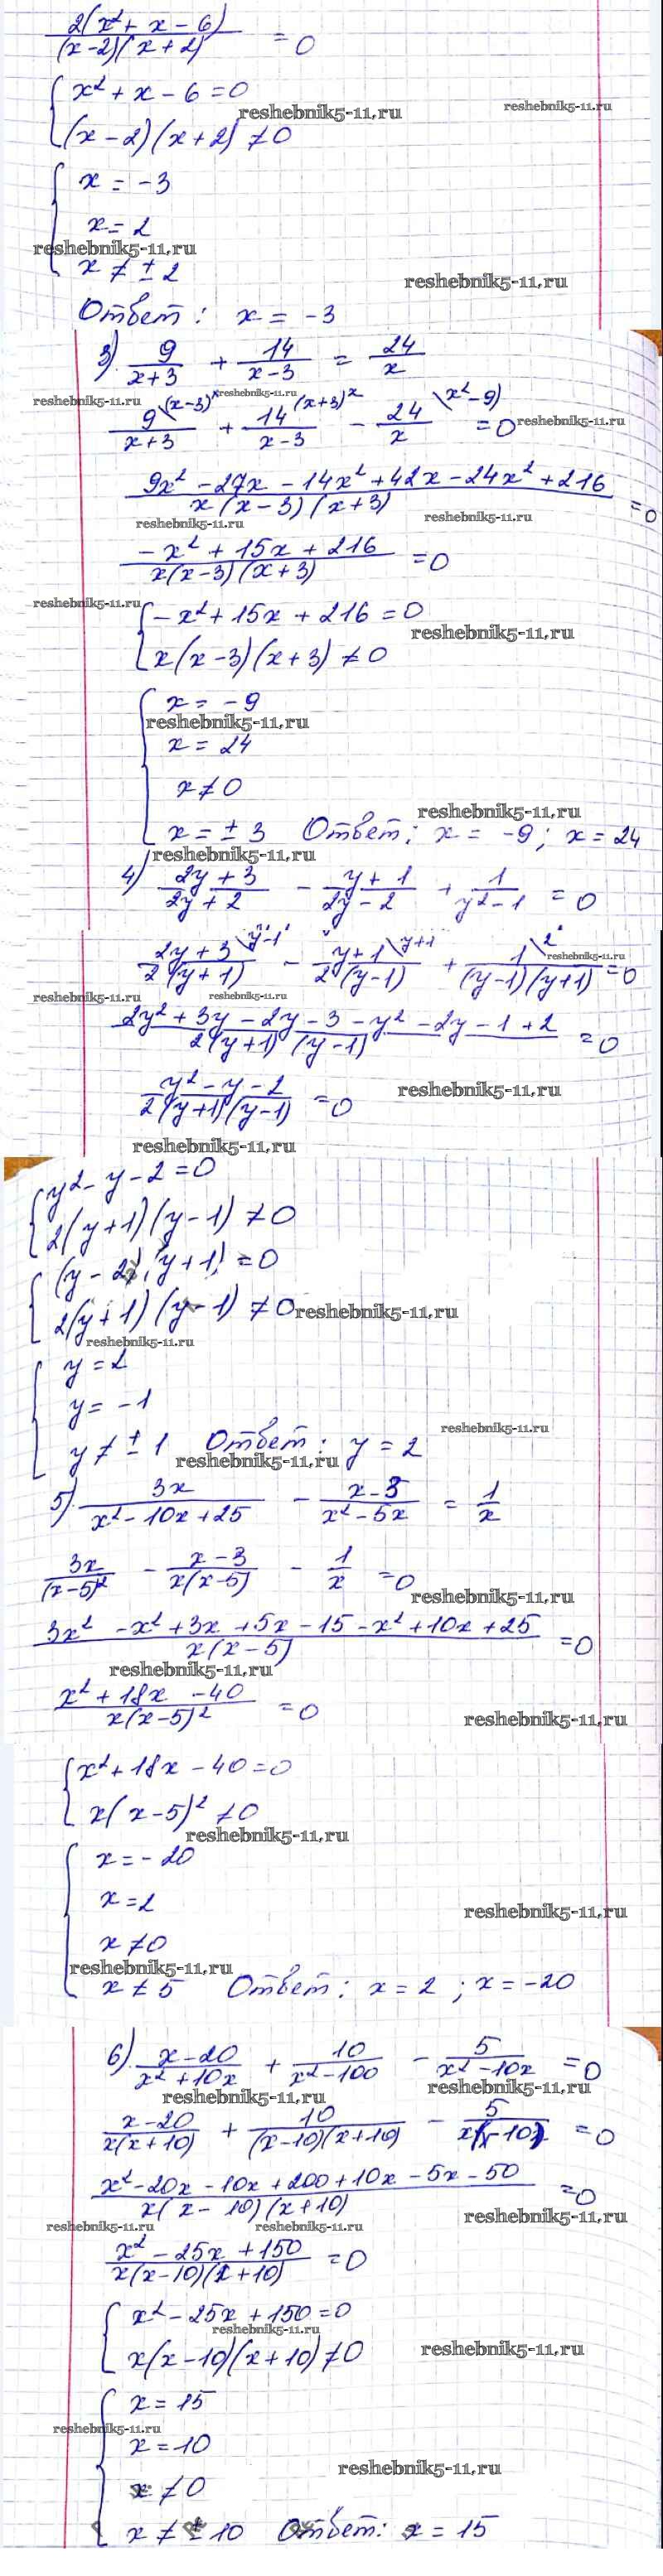 2(x² + x - 6)
(x-2)(x+2) = 0
{ x² + x - 6 = 0
reshebnik5-11.ru reshebnik5-11.ru
(x-2)(x+2) ≠ 0
{ x = -3
x = 2
reshebnik5-11.ru
x ≠ ± 2
reshebnik5-11.ru
Ответ: x = -3
3) 9/(x+3) + 14/(x-3) = 24/x
reshebnik5-11.ru reshebnik5-11.ru
9\(x-3)x/(x+3) + 14(x+3)x/(x-3) - 24\(x²-9)/x = 0 reshebnik5-11.ru
9x² - 27x - 14x² + 42x - 24x² + 216
x(x-3)(x+3) = 0
reshebnik5-11.ru reshebnik5-11.ru
-x² + 15x + 216
x(x-3)(x+3) = 0
reshebnik5-11.ru
{ -x² + 15x + 216 = 0
reshebnik5-11.ru
x(x-3)(x+3) ≠ 0
{ x = -9
reshebnik5-11.ru
x = 24
x ≠ 0
reshebnik5-11.ru
x = ± 3 Ответ: x = -9; x = 24
reshebnik5-11.ru
4) (2y+3)/(2y+2) - (y+1)/(2y-2) + 1/(y²-1) = 0
(2y+3)\y-1/2(y+1) - (y+1)\y+1/2(y-1) + 1\2/(y-1)(y+1) = 0
reshebnik5-11.ru
reshebnik5-11.ru reshebnik5-11.ru
2y² + 3y - 2y - 3 - y² - 2y - 1 + 2
2(y+1)(y-1) = 0
y² - y - 2
2(y+1)(y-1) = 0
reshebnik5-11.ru
reshebnik5-11.ru
{ y² - y - 2 = 0
2(y+1)(y-1) ≠ 0
{ (y-2)(y+1) = 0
2(y+1)(y-1) ≠ 0 reshebnik5-11.ru
reshebnik5-11.ru
{ y = 2
y = -1
reshebnik5-11.ru
y ≠ ± 1 Ответ: y = 2
reshebnik5-11.ru
5) 3x/(x²-10x+25) - (x-3)/(x²-5x) = 1/x
3x/(x-5)² - (x-3)/x(x-5) - 1/x = 0
reshebnik5-11.ru
3x² - x² + 3x + 5x - 15 - x² + 10x + 25
x(x-5) = 0
reshebnik5-11.ru
x² + 18x - 40
x(x-5)² = 0
reshebnik5-11.ru
{ x² + 18x - 40 = 0
x(x-5)² ≠ 0
reshebnik5-11.ru
{ x = -20
x = 2
reshebnik5-11.ru
x ≠ 0
reshebnik5-11.ru
x ≠ 5 Ответ: x = 2; x = -20
6) (x-20)/(x²+10x) + 10/(x²-100) - 5/(x²-10x) = 0
reshebnik5-11.ru reshebnik5-11.ru
(x-20)/x(x+10) + 10/(x-10)(x+10) - 5/x(x-10) = 0
x² - 20x - 10x + 200 + 10x - 5x - 50
x(x-10)(x+10) = 0
reshebnik5-11.ru reshebnik5-11.ru reshebnik5-11.ru
x² - 25x + 150
x(x-10)(x+10) = 0
{ x² - 25x + 150 = 0
reshebnik5-11.ru
x(x-10)(x+10) ≠ 0
reshebnik5-11.ru
{ x = 15
reshebnik5-11.ru
x = 10
reshebnik5-11.ru
x ≠ 0
x ≠ ± 10 Ответ: x = 15